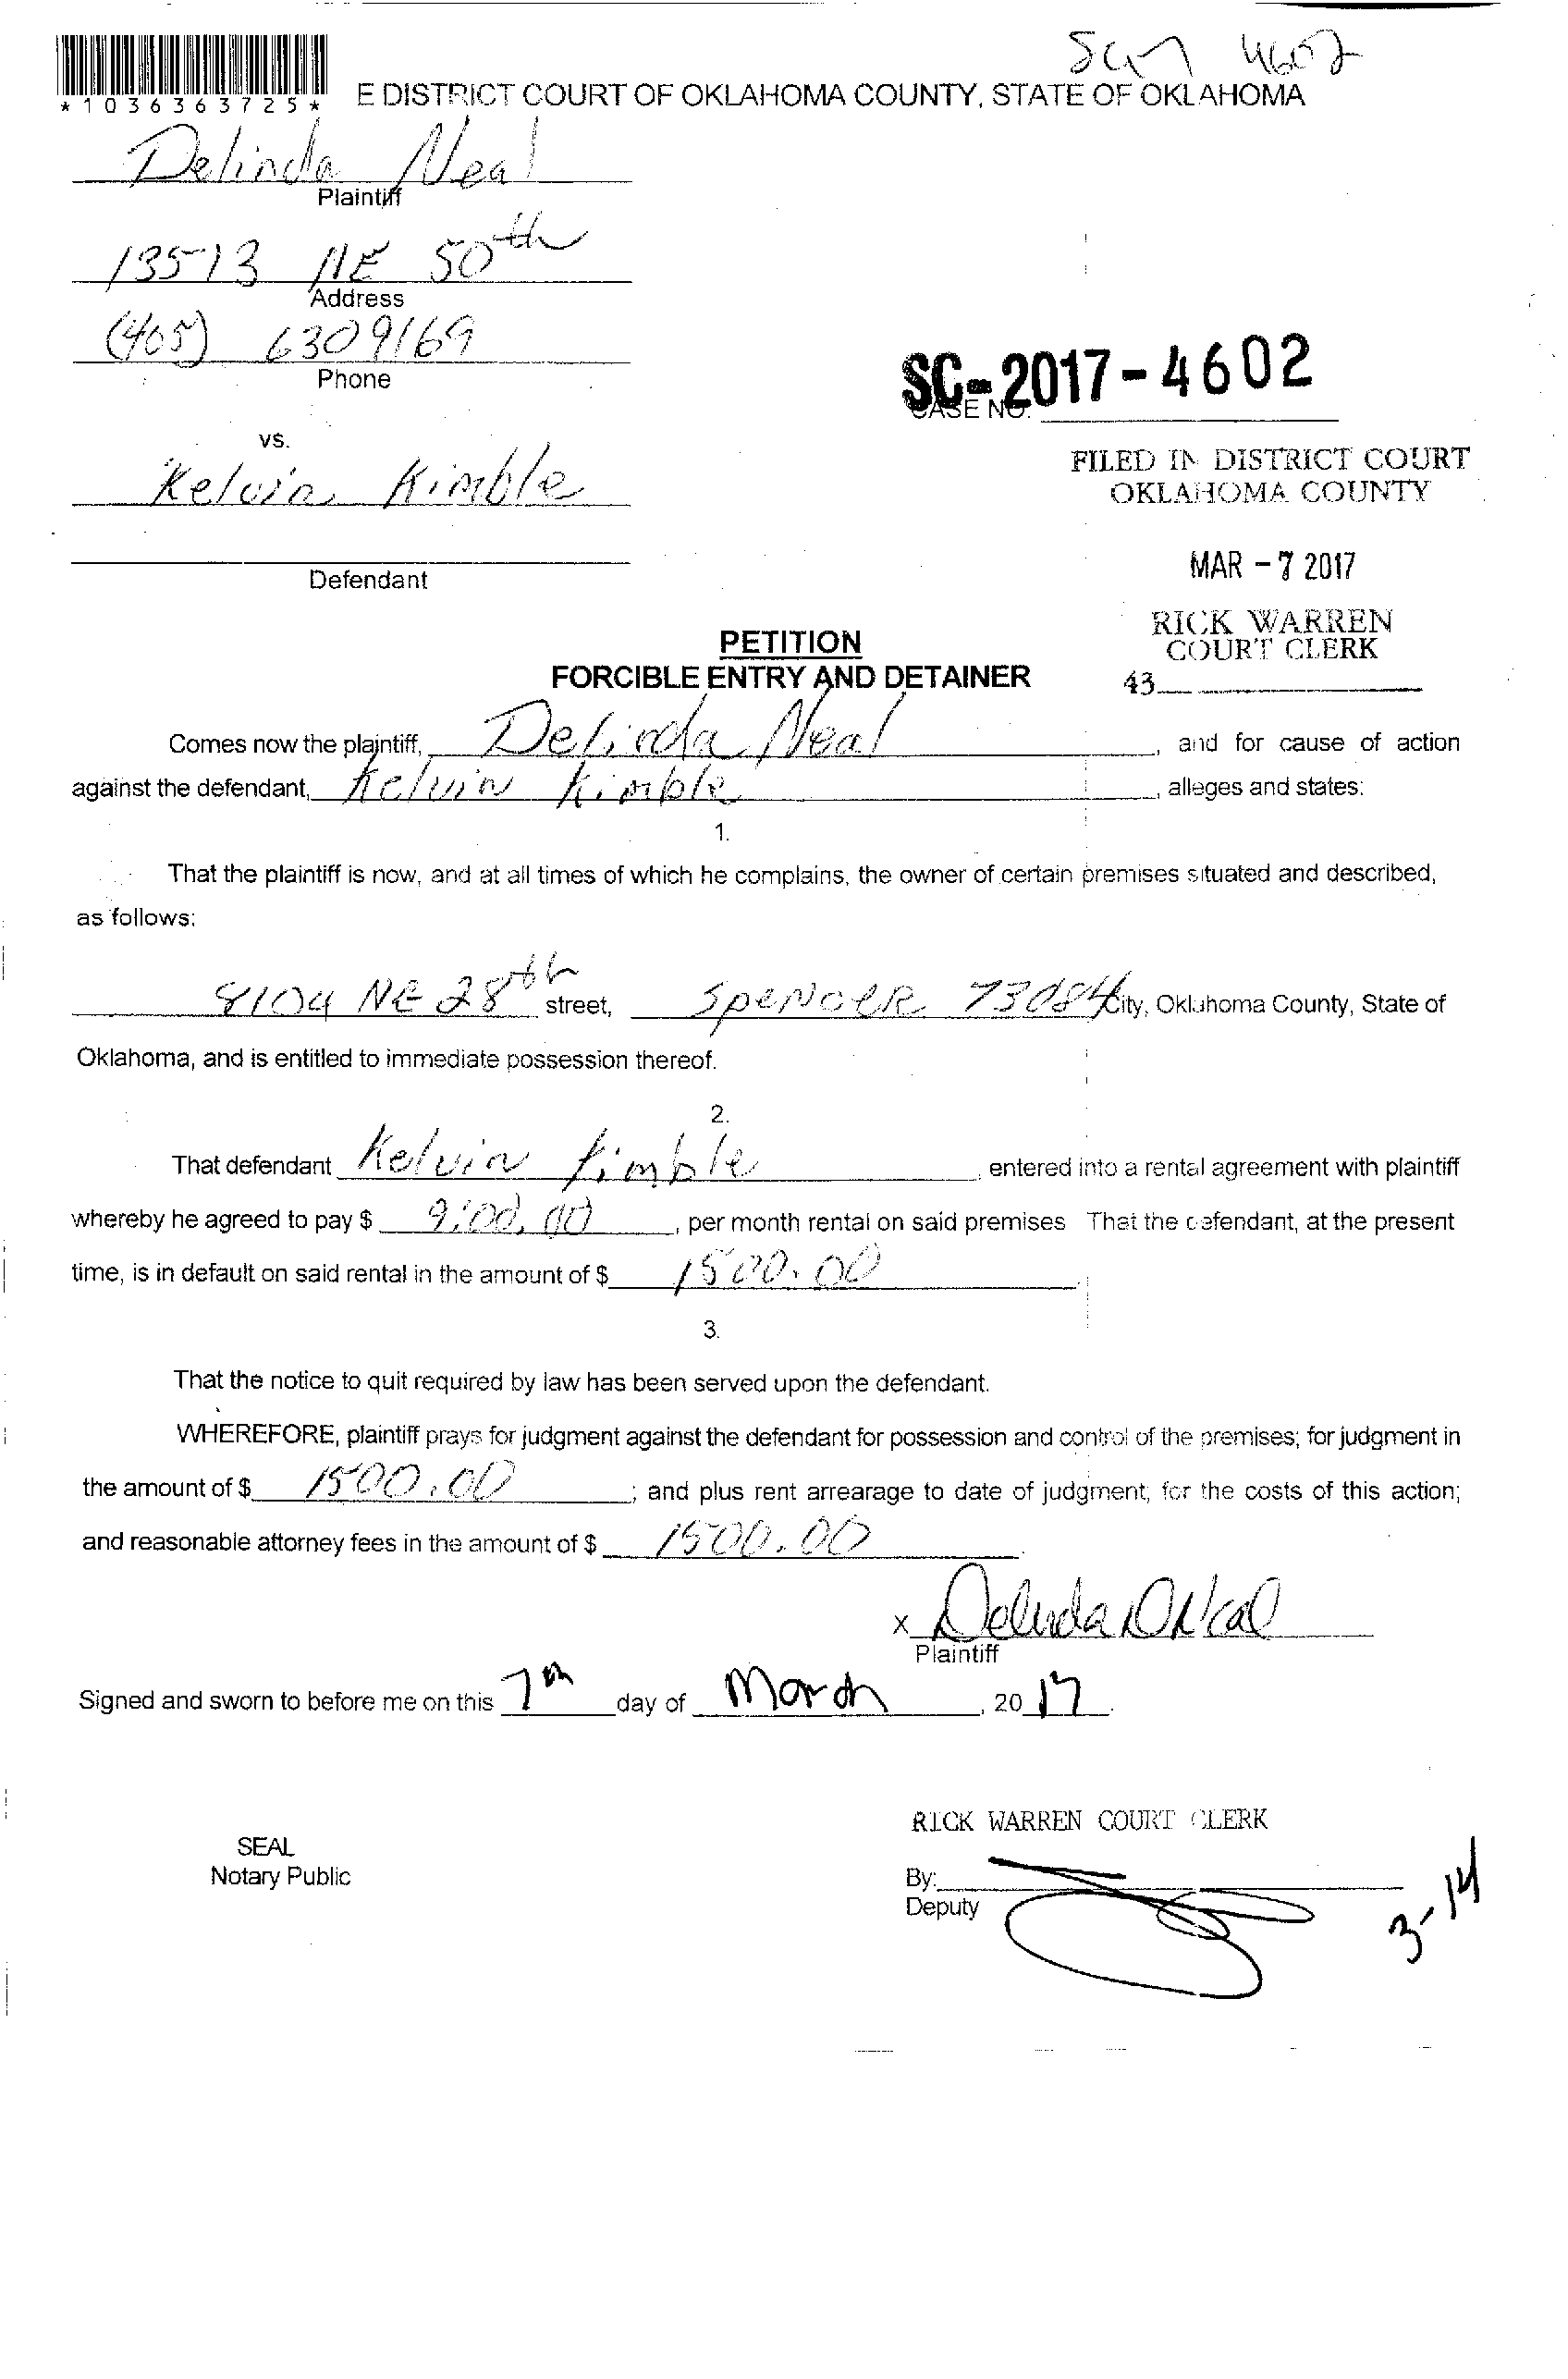 SC17 4602
*1036363725* E DISTRICT COURT OF OKLAHOMA COUNTY, STATE OF OKLAHOMA
Delinda Neal
Plaintiff
13513 NE 50th
Address
(405) 6309169
Phone
SC-2017-4602
CASE NO.
vs.
Kelvin Kimble
FILED IN DISTRICT COURT
OKLAHOMA COUNTY
Defendant
MAR - 7 2017
RICK WARREN
COURT CLERK
43
PETITION
FORCIBLE ENTRY AND DETAINER
Comes now the plaintiff, Delinda Neal, and for cause of action
against the defendant, Kelvin Kimble, alleges and states:
1.
That the plaintiff is now, and at all times of which he complains, the owner of certain premises situated and described,
as follows:
8104 NE 28th street, Spencer 73084 City, Oklahoma County, State of
Oklahoma, and is entitled to immediate possession thereof.
2.
That defendant Kelvin Kimble, entered into a rental agreement with plaintiff
whereby he agreed to pay $ 9:00.00, per month rental on said premises That the defendant, at the present
time, is in default on said rental in the amount of $ 1500.00.
3.
That the notice to quit required by law has been served upon the defendant.
WHEREFORE, plaintiff prays for judgment against the defendant for possession and control of the premises; for judgment in
the amount of $ 1500.00; and plus rent arrearage to date of judgment; for the costs of this action;
and reasonable attorney fees in the amount of $ 1500.00.
x Delinda D Neal
Plaintiff
Signed and sworn to before me on this 7th day of March, 2017.
RICK WARREN COURT CLERK
SEAL
Notary Public
By:
Deputy
3-14